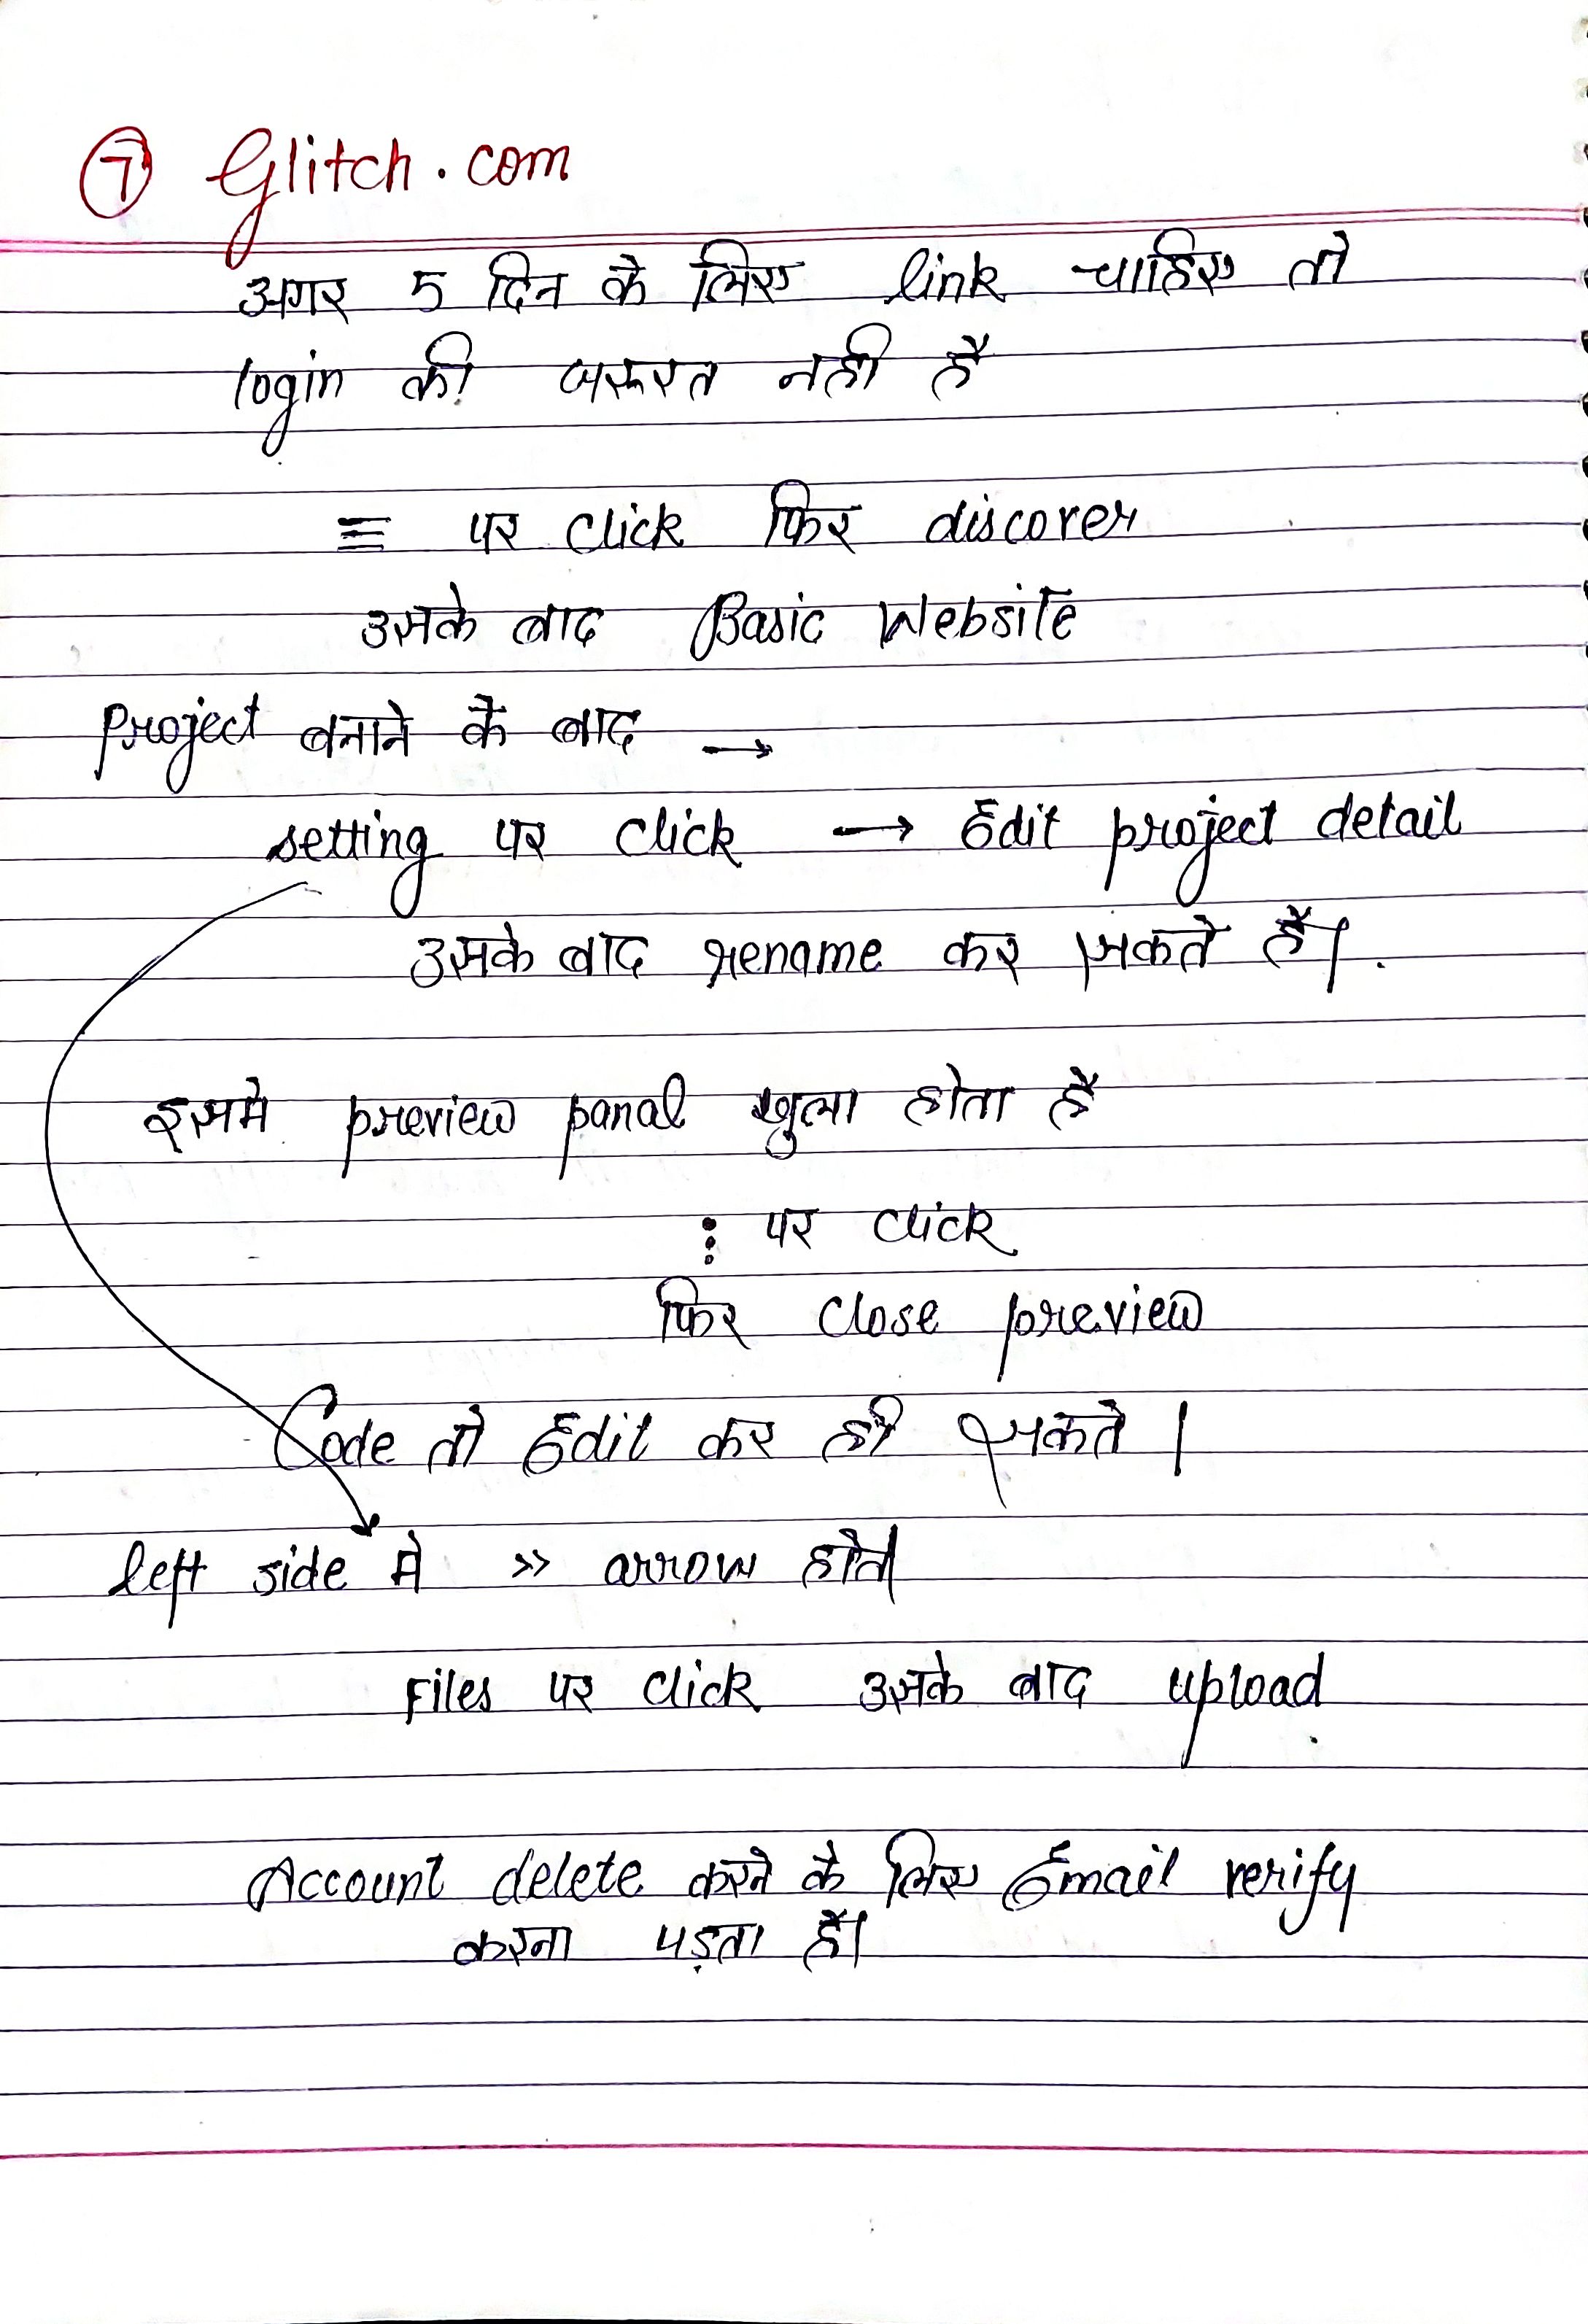 ⑦ Glitch.com
अगर 5 दिन के लिए link चाहिए तो
login की जरूरत नही है
≡ पर click फिर discover
उसके बाद Basic Website
Project बनाने के बाद →
setting पर click → Edit project detail
उसके बाद rename कर सकते है।
इसमे preview panal खुला होता है
⋮ पर click
फिर close preview
Code तो Edit कर ही सकते।
left side मे >> arrow होता
Files पर click उसके बाद upload
Account delete करने के लिए Email verify
करना पड़ता है।